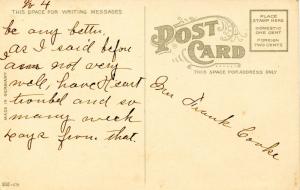 4
THIS SPACE FOR WRITING MESSAGES
be any better,
as I said before
am not very
well, have Heart
troubel and so
many week
days from that.
MADE IN GERMANY
POST CARD
THIS SPACE FOR ADDRESS ONLY
PLACE
STAMP HERE
DOMESTIC
ONE CENT
FOREIGN
TWO CENTS
Frank Cooke